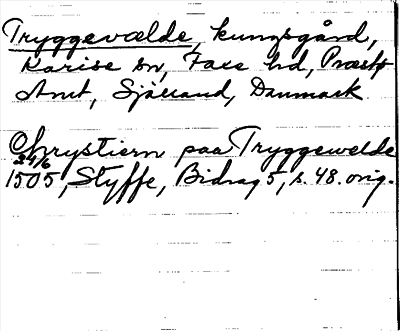 Tryggevælde kungsgård,
Karise sn, Faxe hd, Præstø
Amt, Själland, Danmark
Chrystiern paa Tryggewelde
24/6
1505, Styffe, Bidrag 5, s. 48. orig.